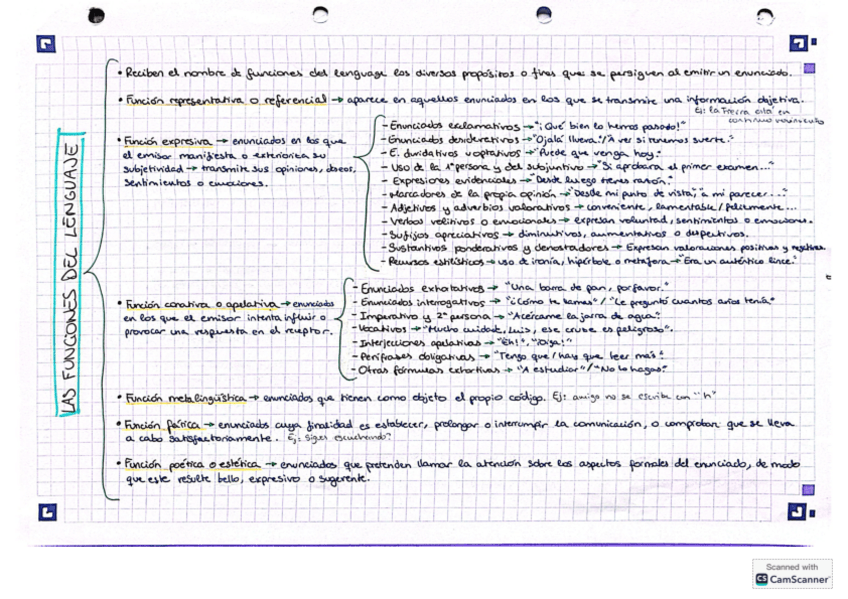 LAS FUNCIONES DEL LENGUAJE
• Reciben el nombre de funciones del lenguaje los diversos propósitos o fines que se persiguen al emitir un enunciado.
• Función representativa o referencial → aparece en aquellos enunciados en los que se transmite una información objetiva.
Ej: la Tierra está en
continuo movimiento
• Función expresiva → enunciados en los que
el emisor manifiesta o exterioriza su
subjetividad → transmite sus opiniones, deseos,
sentimientos o emociones.
- Enunciados exclamativos → "¡Qué bien lo hemos pasado!"
- Enunciados desiderativos → "Ojalá llueva"/"A ver si tenemos suerte."
- E. dubitativos u optativos → "Puede que venga hoy."
- Uso de la 1ª persona y del subjuntivo → "Si aprobara el primer examen..."
- Expresiones evidenciales → "Desde luego tienes razón."
- Marcadores de la propia opinión → "Desde mi punto de vista, "a mi parecer..."
- Adjetivos y adverbios valorativos → conveniente, lamentable/felizmente...
- Verbos volitivos o emocionales → expresan voluntad, sentimientos o emociones.
- Sufijos apreciativos → diminutivos, aumentativos o despectivos.
- Sustantivos ponderativos y denostadores → Expresan valoraciones positivas y negativas.
- Recursos estilísticos → uso de ironía, hipérbole o metáfora → "Era un auténtico lince."
• Función conativa o apelativa → enunciados
en los que el emisor intenta influir o
provocar una respuesta en el receptor.
- Enunciados exhortativos → "Una barra de pan, por favor."
- Enunciados interrogativos → "¿Cómo te llamas"/ "Le preguntó cuantos años tenía"
- Imperativo y 2ª persona → "Acércame la jarra de agua"
- Vocativos → "Mucho cuidado, Luis, ese cruce es peligroso".
- Interjecciones apelativas → "Eh!", "¡Oiga!"
- Perífrasis obligativas → "Tengo que/hay que leer más"
- Otras fórmulas exhortivas → "A estudiar"/"No lo hagas"
• Función metalingüística → enunciados que tienen como objeto el propio código. Ej: amigo no se escribe con "h"
• Función fática → enunciados cuya finalidad es establecer, prolongar o interrumpir la comunicación, o comprobar que se lleva
a cabo satisfactoriamente. Ej: Sigues escuchando?
• Función poética o estética → enunciados que pretenden llamar la atención sobre los aspectos formales del enunciado, de modo
que este resulte bello, expresivo o sugerente.
Scanned with
CS CamScanner